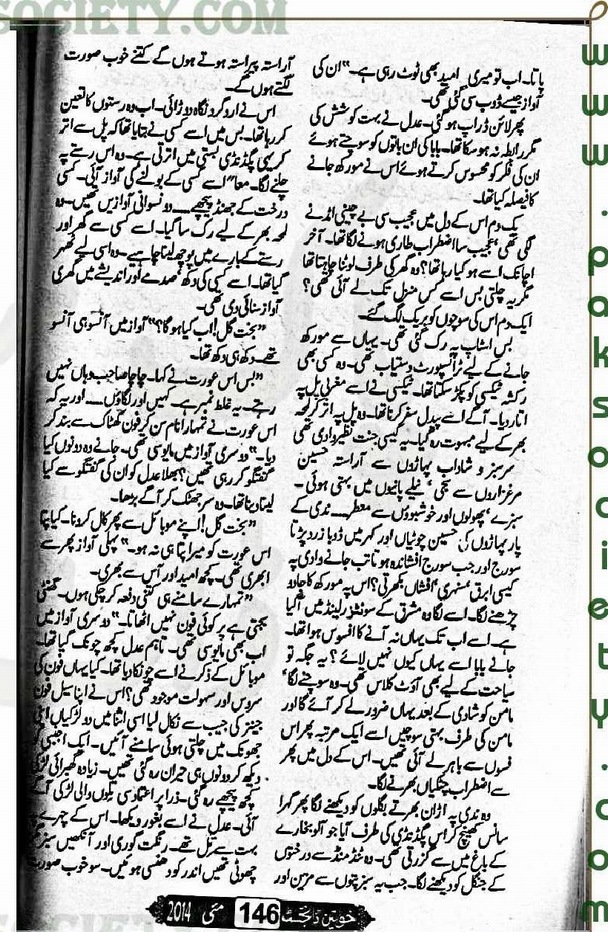 پاتا۔ اب تو میری امید بھی ٹوٹ رہی ہے۔" ان کی
آواز جیسے ڈوب سی گئی تھی۔
پھر لائن ڈراپ ہو گئی۔ عدل نے بہت کوشش کی
مگر رابطہ نہ ہو سکا تھا۔ بابا کی ان باتوں کو سوچتے ہوئے
ان کی فکر کو محسوس کرتے ہوئے اس نے مورکھ جانے
کا فیصلہ کیا تھا۔
یک دم اس کے دل میں عجیب سی بے چینی اترنے
لگی تھی، عجیب سا اضطراب طاری ہونے لگا تھا۔ آخر
اچانک اسے ہو کیا رہا تھا؟ وہ گھر کی طرف لوٹنا چاہتا تھا
مگر یہ چلتی بس اسے کس منزل تک لے آئی تھی؟
ایک دم اس کی سوچوں کو بریک لگ گئے۔
بس اسٹاپ پہ رک گئی تھی۔ یہاں سے مورکھ
جانے کے لیے ٹرانسپورٹ دستیاب تھی۔ وہ کسی بھی
رکشہ ٹیکسی کو پکڑ سکتا تھا۔ ٹیکسی نے اسے مغربی پل پہ
اتار دیا۔ آگے اسے پیدل سفر کرنا تھا۔ وہ پل پہ اتر کر لمحہ
بھر کے لیے مبہوت رہ گیا۔ یہ کیسی جنت نظیر وادی تھی
سرسبز و شاداب پہاڑوں سے آراستہ حسین
مرغزاروں سے سجی، نیلے پانیوں میں بہتی ہوئی۔
سبزے، پھولوں اور خوشبوؤں سے معطر۔۔۔ ندی کے
پار پہاڑوں کی حسین چوٹیاں اور کہر میں ڈوبا زرد پڑتا
سورج اور جب سورج افشاندہ ہوتا تب جانے وادی پہ
کیسی ابرق، سنہری، افشاں بکھرتی؟ اس پہ مورکھ کا جادو
چڑھنے لگا۔ اسے لگا وہ مشرق کے سوئٹزرلینڈ میں آ گیا
ہے۔ اسے اب تک یہاں نہ آنے کا افسوس ہوا تھا۔
جانے بابا اسے یہاں کیوں نہیں لائے؟ یہ جگہ تو
سیاحت کے لیے بھی آؤٹ کلاس تھی۔ وہ سوچنے لگا
مامن کو شادی کے بعد یہاں ضرور لے کر آئے گا اور
مامن کی طرف بہتی سوچیں اسے ایک مرتبہ پھر اس
فسوں سے باہر لے آئی تھیں۔ اس کے دل میں پھر
سے اضطراب چٹکیاں بھرنے لگا۔
وہ ندی پہ اڑان بھرتے بگلوں کو دیکھنے لگا پھر گہرا
سانس کھینچ کر اس پگڈنڈی کی طرف آیا جو آلو بخارے
کے باغ میں سے گزرتی تھی۔ وہ ٹنڈ منڈ سے درختوں
کے جنگل کو دیکھنے لگا۔ جب یہ سبز پتوں سے مزین اور
آراستہ پیراستہ ہوتے ہوں گے کتنے خوب صورت
لگتے ہوں گے۔
اس نے ارد گرد نگاہ دوڑائی۔ اب وہ رستوں کا تعین
کر رہا تھا۔ بس میں اسے کسی نے بتایا تھا کہ پل سے اتر
کر یہی پگڈنڈی بستی میں اترتی ہے۔ وہ اس رستے پہ
چلنے لگا۔ معاً اسے کسی کے بولنے کی آواز آئی۔ کسی
درخت کے جھنڈ پیچھے۔۔۔ دو نسوانی آوازیں تھیں۔ وہ
لمحہ بھر کے لیے رک سا گیا۔ اسے کسی سے گھر اور
رستے کے بارے میں پوچھ لینا چاہیے۔ وہ اسی لیے ٹھہر
گیا تھا۔ اسے کسی کی دکھ، صدمے اور اندیشے میں گھری
آواز سنائی دی تھی۔
"بخت گل! اب کیا ہو گا؟" آواز میں آنسو ہی آنسو
تھے۔ دکھ ہی دکھ تھا۔
"بس اس عورت نے کہا۔ چاچا صاحب وہاں نہیں
رہتے۔ یہ غلط نمبر ہے۔ کہیں اور لگاؤں۔۔۔ اور یہ کہ
اس عورت نے تمہارا نام سن کر فون کھٹاک سے بند کر
دیا۔" دوسری آواز میں مایوسی تھی۔ جانے وہ دونوں کیا
گفتگو کر رہی تھیں؟ بھلا عدل کو ان کی گفتگو سے کیا
لینا دینا تھا۔ وہ سر جھٹک کر آگے بڑھا۔
"بخت گل! اپنے موبائل سے پھر کال کرو نا۔ کیا پتا
اس عورت کو میرا پتا ہی نہ ہو۔" پہلی آواز پھر سے
ابھری تھی۔ کچھ امید اور آس سے بھری۔
"تمہارے سامنے ہی کتنی دفعہ کر چکی ہوں۔ گھنٹی
بجتی ہے پر کوئی فون نہیں اٹھاتا۔" دوسری آواز میں
اب بھی مایوسی تھی۔ تاہم عدل کچھ چونک گیا تھا۔
موبائل کے ذکر نے اسے چونکا دیا تھا۔ کیا یہاں فون کی
سروس اور سہولت موجود تھی؟ اس نے اپنا سیل فون
جینز کی جیب سے نکال لیا اسی اثنا میں دو لڑکیاں اپنی
جھونک میں چلتی ہوئی سامنے آئیں۔ ایک اجنبی کو
دیکھ کر دونوں ہی حیران رہ گئی تھیں۔ زیادہ گھبرائی لڑکی
کچھ پیچھے رہ گئی۔ ذرا پر اعتماد سی تلوں والی لڑکی آگے
آئی۔ عدل نے اسے بغور دیکھا۔ اس کے چہرے پر
بہت سے تل تھے۔ رنگت گوری اور آنکھیں سبز مگر
چھوٹی تھیں اندر کو دھنسی ہوئیں۔ سو خوب صورت
خواتین ڈائجسٹ 146 مئی 2014
www.paksociety.com